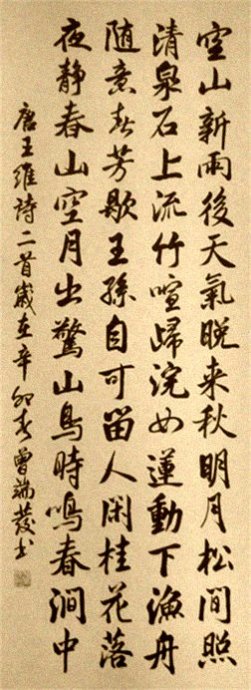 空山新雨後天氣晚来秋明月松間照
清泉石上流竹喧歸浣女蓮動下漁舟
随意春芳歇王孫自可留人闲桂花落
夜静春山空月出驚山鳥時鳴春澗中
唐王維詩二首歲在辛卯春曾端發书